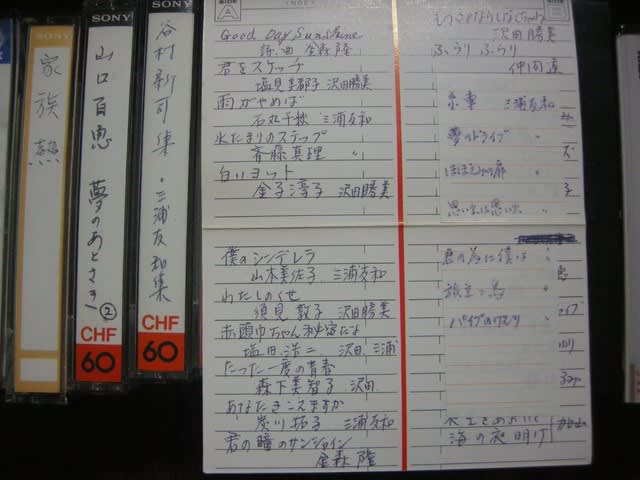 SONY
家族熱
SONY
山口百恵 夢のあとさき ②
CHF
60
SONY
谷村新司集・三浦友和集
CHF
60
SIDE
A
INDEX
Good Day Sunshine
詩・曲 金森隆
君をスケッチ
沢田勝美
雨がやめば
石丸千秋 三浦友和
水たまりのステップ
斉藤真理 〃
白いヨット
金子淳子 沢田勝美
僕のシンデレラ
山本美佐子 三浦友和
わたしのくせ
須見敦子 沢田勝美
赤頭巾ちゃん秘密だよ
塩田浩二 沢田、三浦
たった一度の青春
森下美智子 沢田
あなたきこえますか
三浦友和
君の瞳のサンシャイン
金森隆
SIDE
沢田勝美
ふらり ふらり
仲間達
三浦友和
夢のドライブ 〃
ほほえみの扉 〃
思い出は思い出 〃
君の為に僕は 〃
旅立つ為 〃
海の夜明け